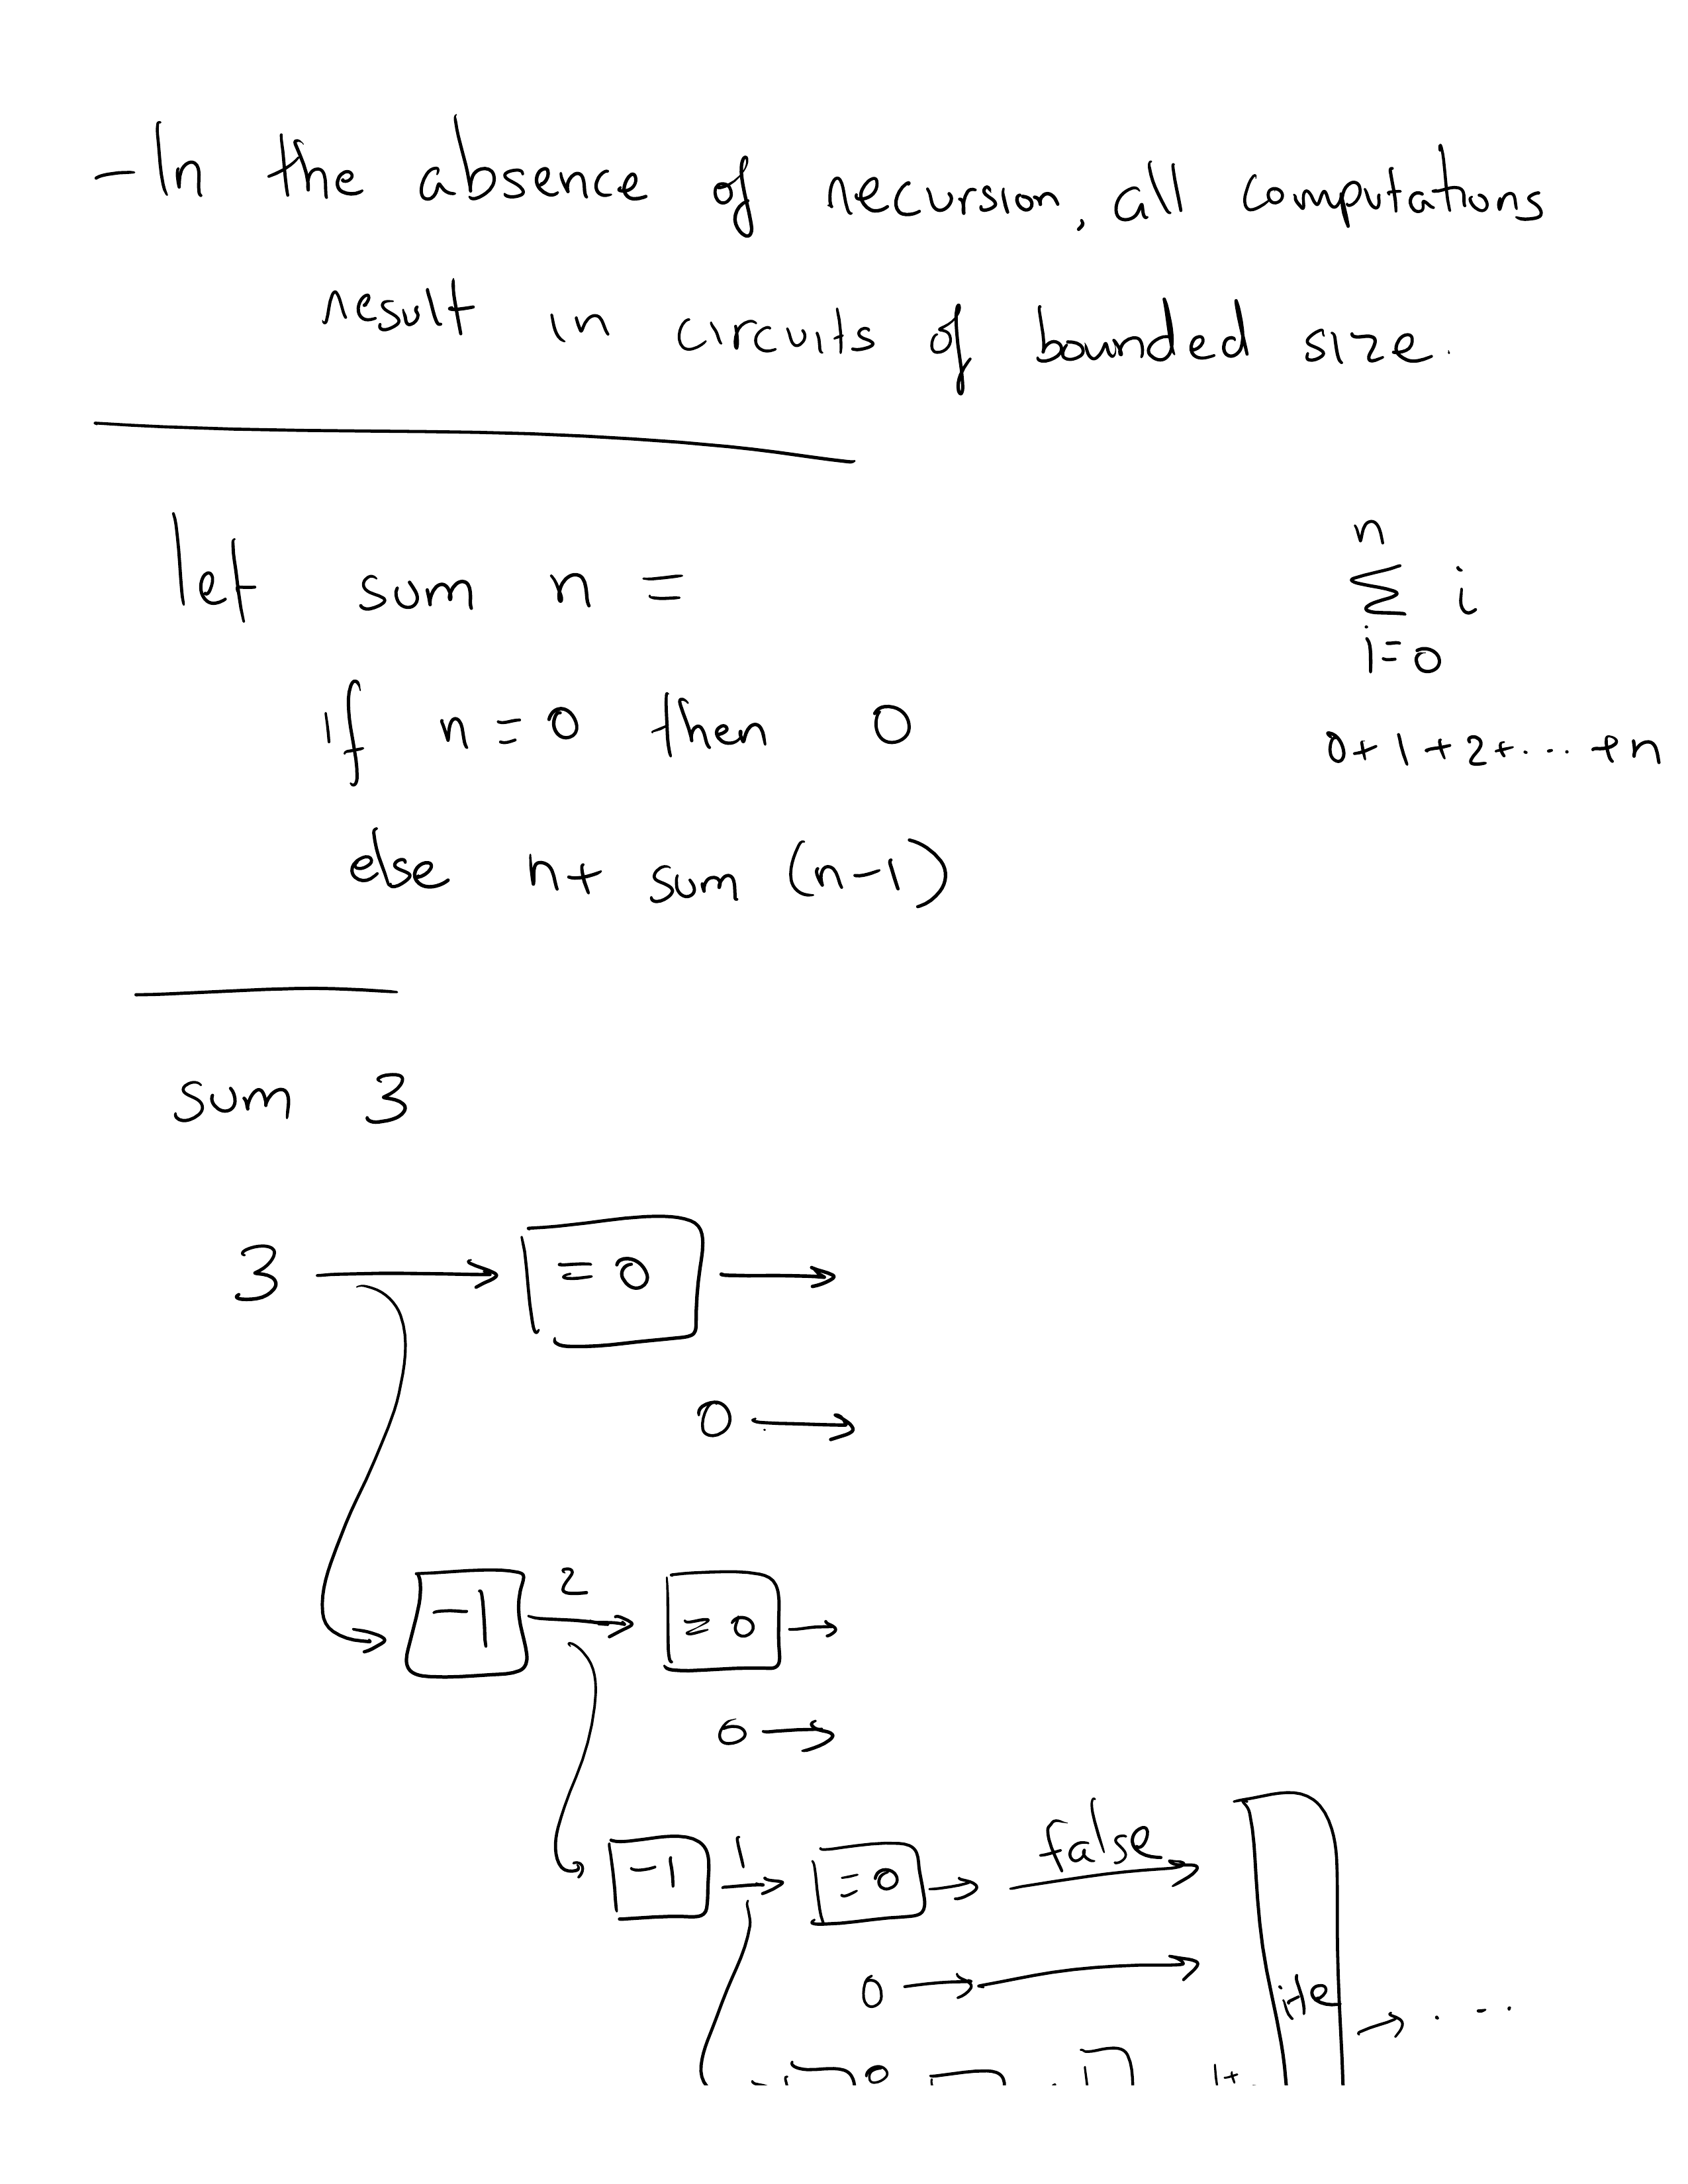 - In the absence of recursion, all computations
result in circuits of bounded size.
let sum n =
if n = 0 then 0
else n + sum (n-1)
n
Σ i
i=0
0+1+2+....+n
sum 3
3 → = 0 →
0 →
-1 2 → = 0 →
0 →
-1 1 → = 0 → false →
0 → →
ite → . ...
0
1+